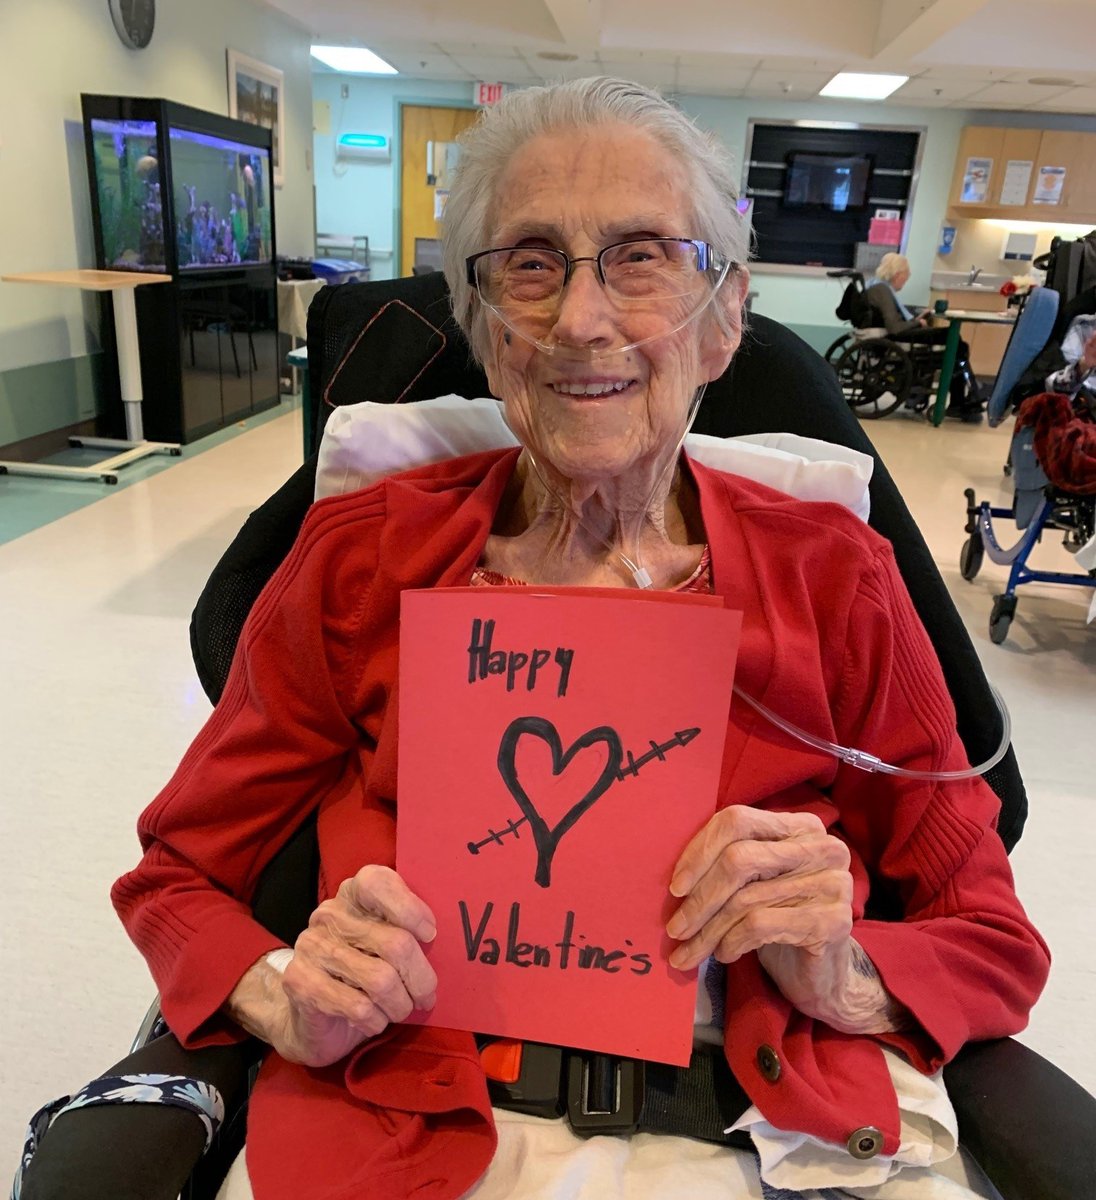 EXIT
Happy
Valentine's